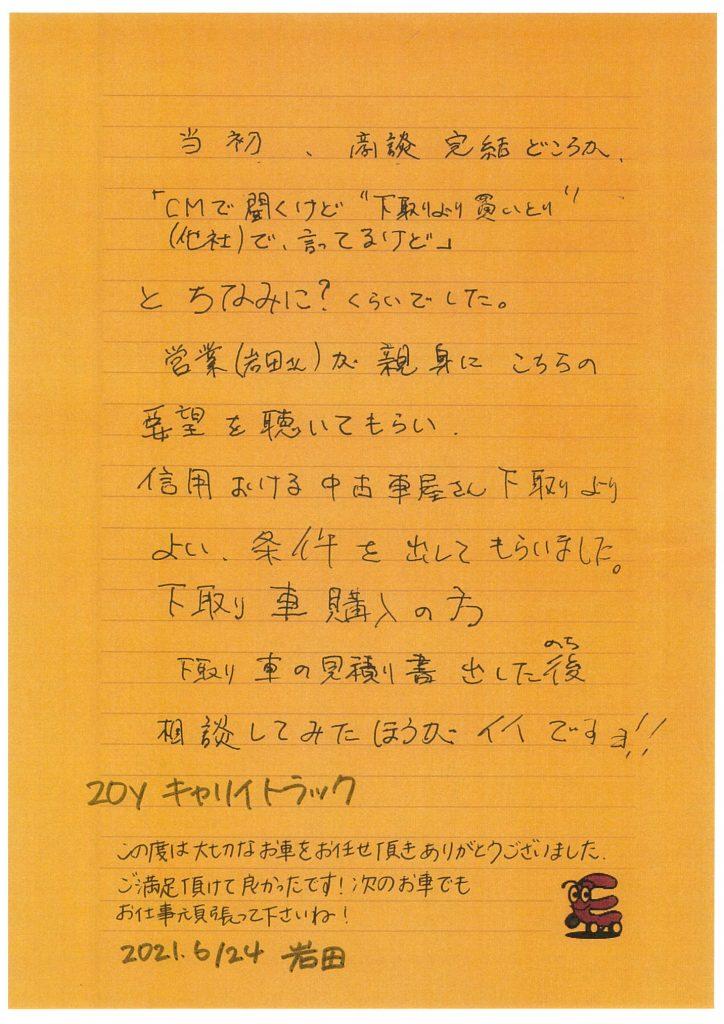 当初、商談完結どころか、
「CMで聞くけど“下取りより買いとり”
(他社)で、言ってるけど」
とちなみに?くらいでした。
営業(岩田さん)が親身にこちらの
要望を聴いてもらい、
信用おける中古車屋さん下取りより
よい、条件を出してもらいました。
下取り車購入の方
下取り車の見積り書出した後
のち
相談してみたほうがイイですョ!!
20y キャリイトラック
この度は大切なお車をお任せ頂きありがとうございました.
ご満足頂けて良かったです!次のお車でも
お仕事頑張って下さいね!
2021.6/24 岩田